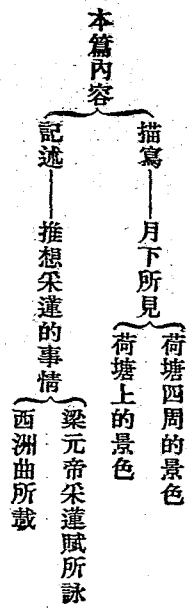 本篇內容
描寫——月下所見
荷塘四周的景色
荷塘上的景色
記述——推想采蓮的事情
梁元帝采蓮賦所詠
西洲曲所載